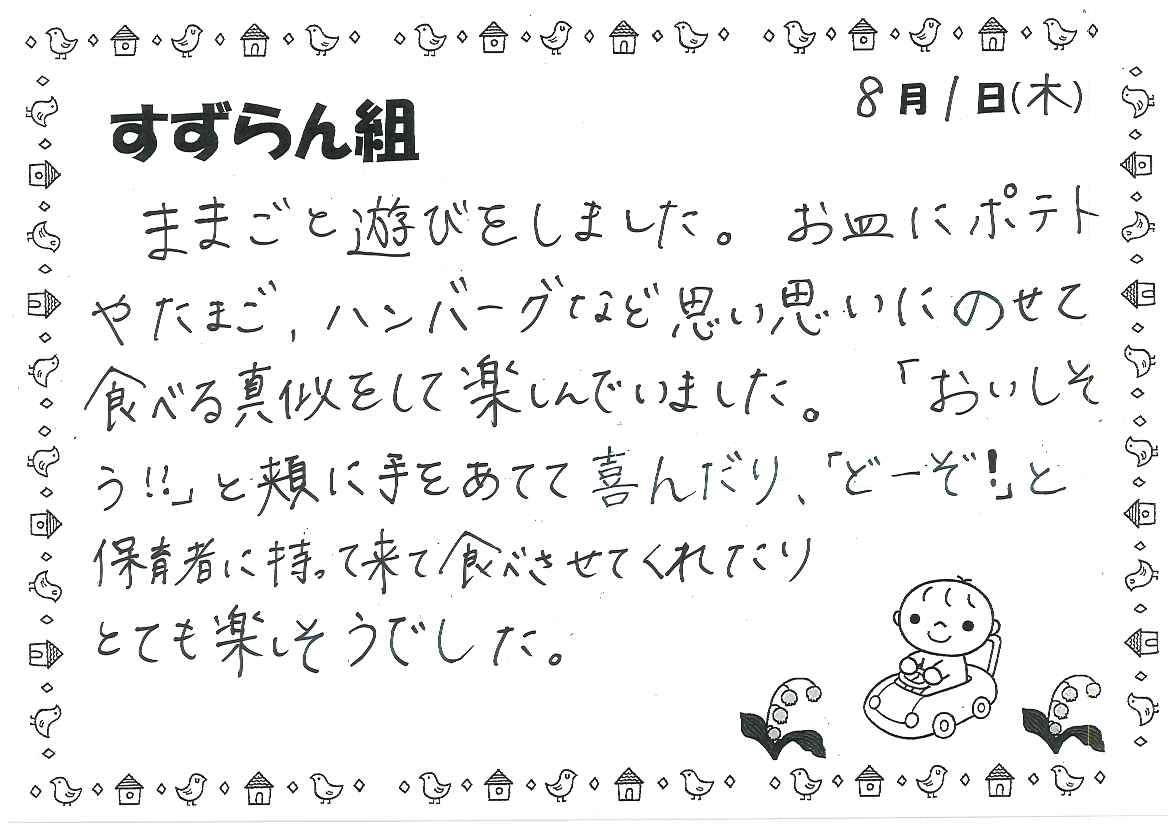 8月1日(木)
すずらん組
ままごと遊びをしました。お皿にポテト
やたまご、ハンバーグなど思い思いにのせて
食べる真似をして楽しんでいました。「おいしそ
う!!」と頬に手をあてて喜んだり、「どーぞ!」と
保育者に持って来て食べさせてくれたり
とても楽しそうでした。